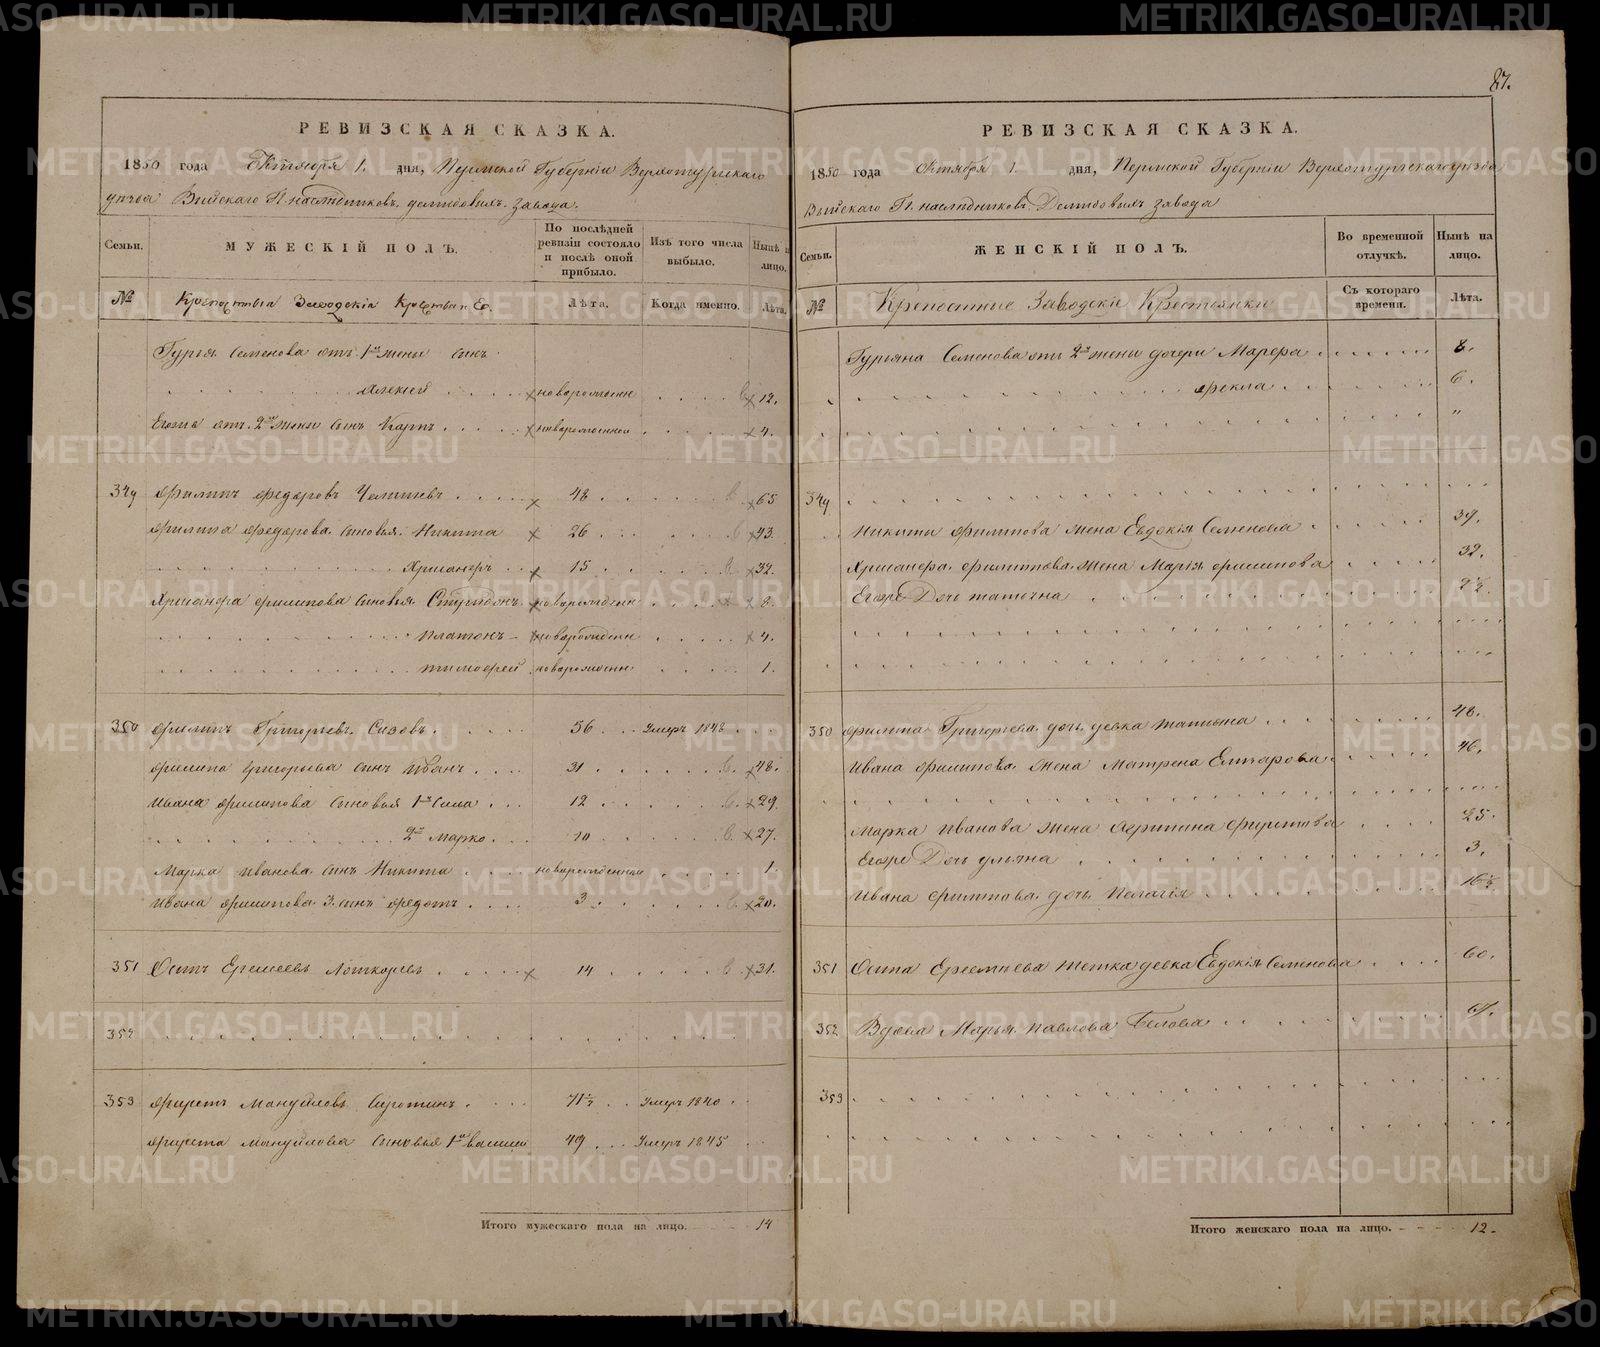 87.
РЕВИЗСКАЯ СКАЗКА.
1850 года Октября 1. дня, Пермской Губерніи Верхотурскаго
уѣзда Выйскаго Г. наслѣдниковъ Демидовыхъ завода.
Семьи.
МУЖЕСКІЙ ПОЛЪ.
По послѣдней ревизіи состояло и послѣ оной прибыло.
Изъ того числа выбыло.
Нынѣ на лицо.
№ Крѣпостные Заводскіе Крестьяне.
Лѣта. Когда именно. Лѣта.
Гурья Семенова отъ 1й жены сынъ
Алексей новорожденн 12.
Егожъ отъ 2й жены сынъ Карпъ новорожденный 4.
349 Филипъ Федоровъ 48 65
Филипа Федорова сыновья Никита 26 43.
Хрисанфъ 15 32.
Хрисанфа Филипова сыновья Спиридонъ новорожденн 8.
Платонъ новорожденн 4.
Тимофей новорожденн 1.
350 Филипъ Григорьевъ Сизовъ 56 Умеръ 1848
Филипа Григорьева сынъ Иванъ 31 48.
Ивана Филипова сыновья 1й Сила 12 29
2й Марко 10 27.
Марка Иванова сынъ Никита новорожденный 1.
Ивана Филипова 3. сынъ Федотъ 3 20.
351 Осипъ Ереемеевъ 14 31.
352
353 Фирстъ Мануйловъ Сиротинъ 71½ Умеръ 1840
Фирста Мануйлова сыновья 1й Василій 49 Умеръ 1845
Итого мужескаго пола на лицо. 14
РЕВИЗСКАЯ СКАЗКА.
1850 года Октября 1. дня, Пермской Губерніи Верхотурскаго уѣзда
Выйскаго Г. наслѣдниковъ Демидовыхъ завода
Семьи.
ЖЕНСКІЙ ПОЛЪ.
Во временной отлучкѣ.
Нынѣ на лицо.
№ Крѣпостные Заводскіе Крестьянки
Съ котораго времени. Лѣта.
Гурьяна Семенова отъ 2й жены дочери Марфа 8.
Фекла 6.
"
349
Никиты Филипова жена Евдокія Семенова 39.
Хрисанфа Филипова жена Марія Филипова 32.
Егоже Дочь Татьяна 2½.
350 Филипа Григорьева дочь девка Татьяна 48.
Ивана Филипова жена Матрена Елизарова 46.
Марка Иванова жена 25.
Егоже Дочь Ульяна 3.
Ивана Филипова дочь Пелагія 16½
351 Осипа Ереемеева тетка девка Евдокія Семенова 60.
352 Вдова Марья Павлова Белова 67.
353
Итого женскаго пола на лицо. 12
METRIKI.GASO-URAL.RU